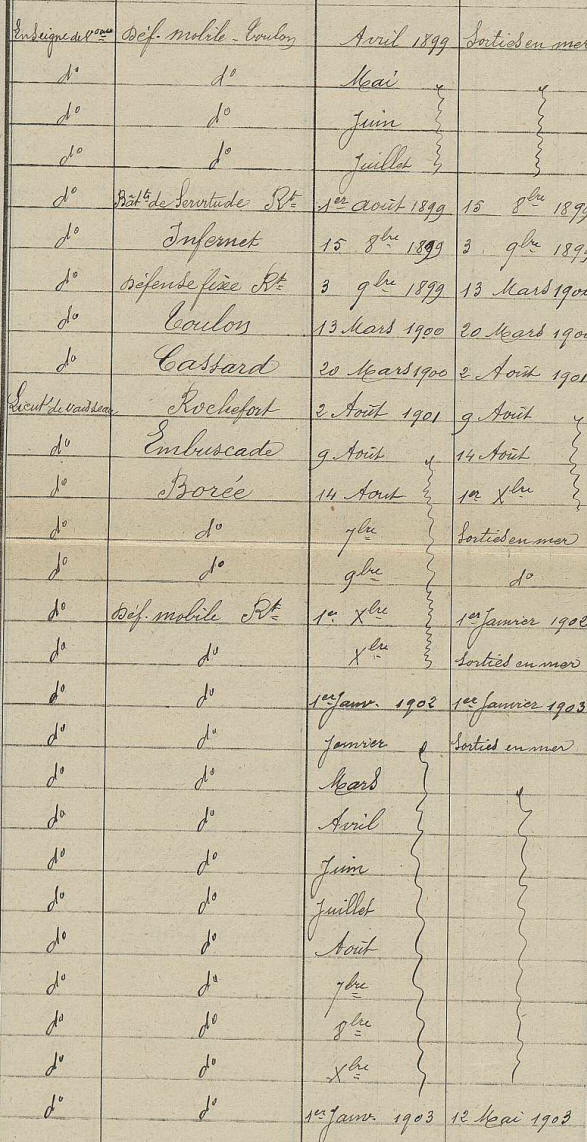 Enseigne de Vau Déf. mobile - Toulon Avril 1899 Sorties en mer
do do Mai
do do Juin
do do Juillet
do Bâtts de Servitude Rt 1er août 1899 15 8bre 1899
do Infernet 15 8bre 1899 3 9bre 1899
do Défense fixe Rt 3 9bre 1899 13 Mars 1900
do Toulon 13 Mars 1900 20 Mars 1900
do Cassard 20 Mars 1900 2 Août 1901
Lieut. de vaisseau Rochefort 2 Août 1901 9 Août
do Embuscade 9 Août 14 Août
do Borée 14 Aout 1er Xbre
do do 7bre Sorties en mer
do do 9bre do
do Déf. mobile Rt 1er Xbre 1er Janvier 1902
do do Xbre Sorties en mer
do do 1er Janv. 1902 1er Janvier 1903
do do Janvier Sorties en mer
do do Mars
do do Avril
do do Juin
do do Juillet
do do Août
do do 7bre
do do 8bre
do do Xbre
do do 1er Janv. 1903 12 Mai 1903